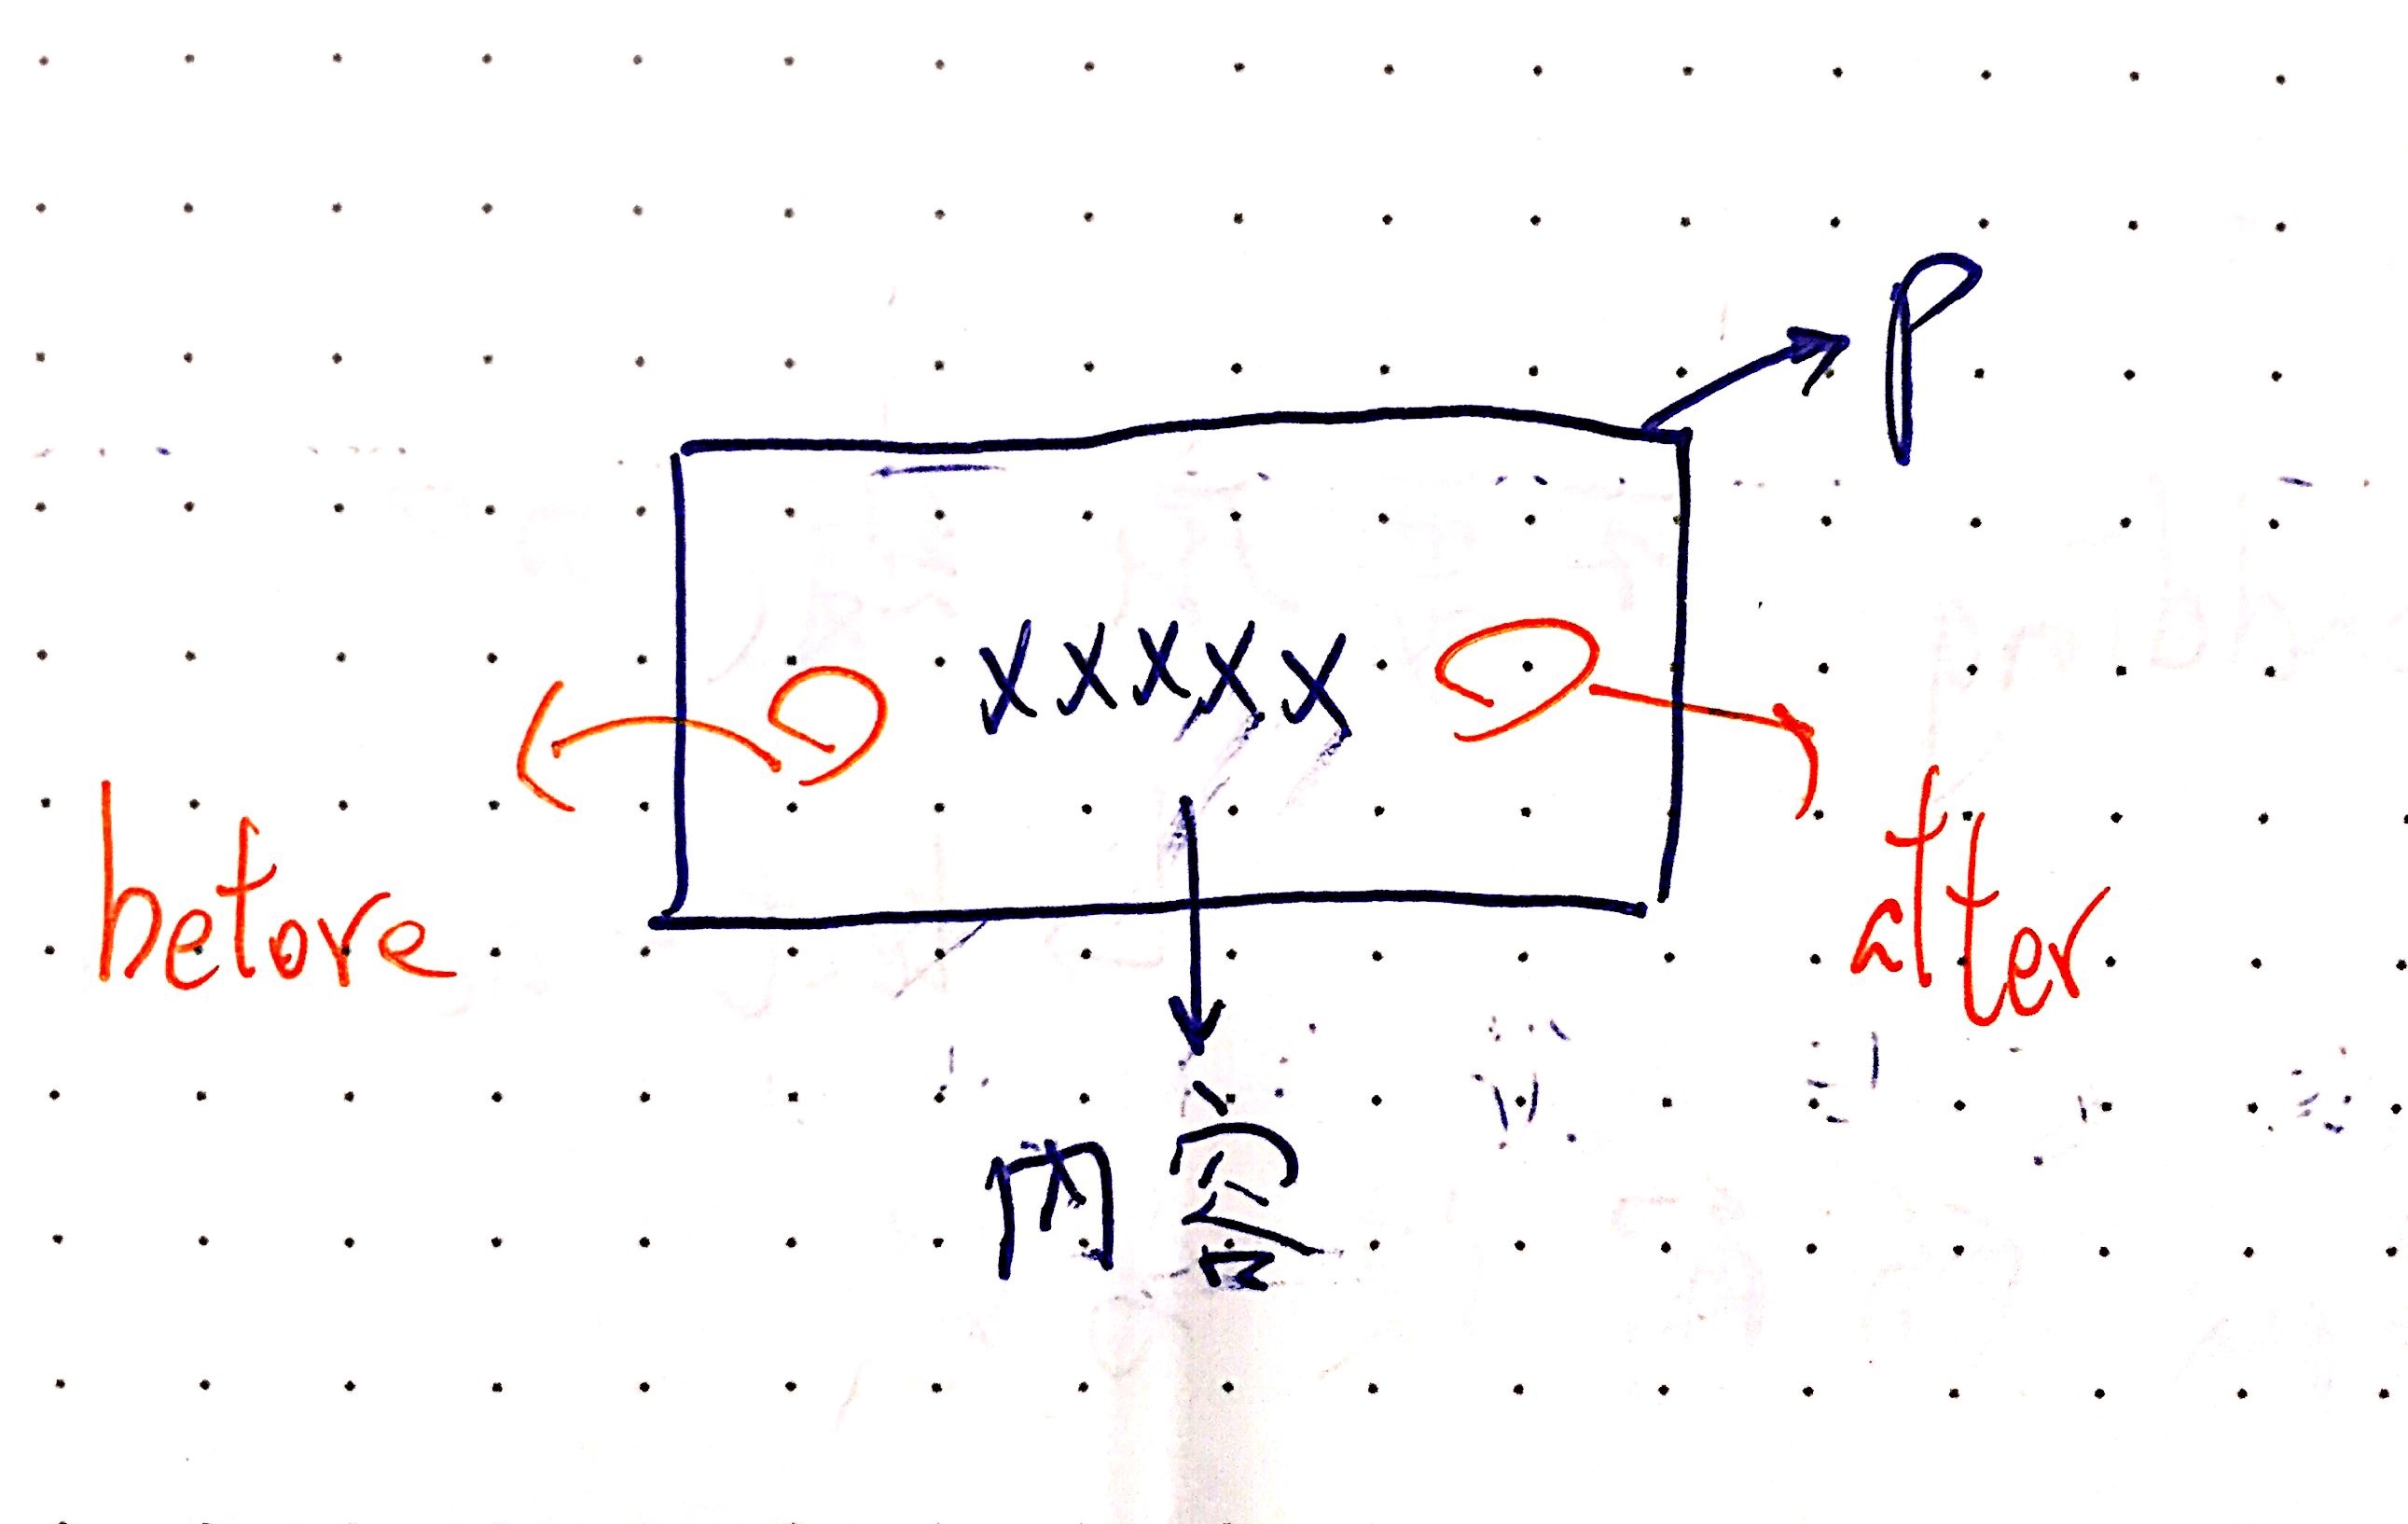 P
xxxxx
before
after
内容